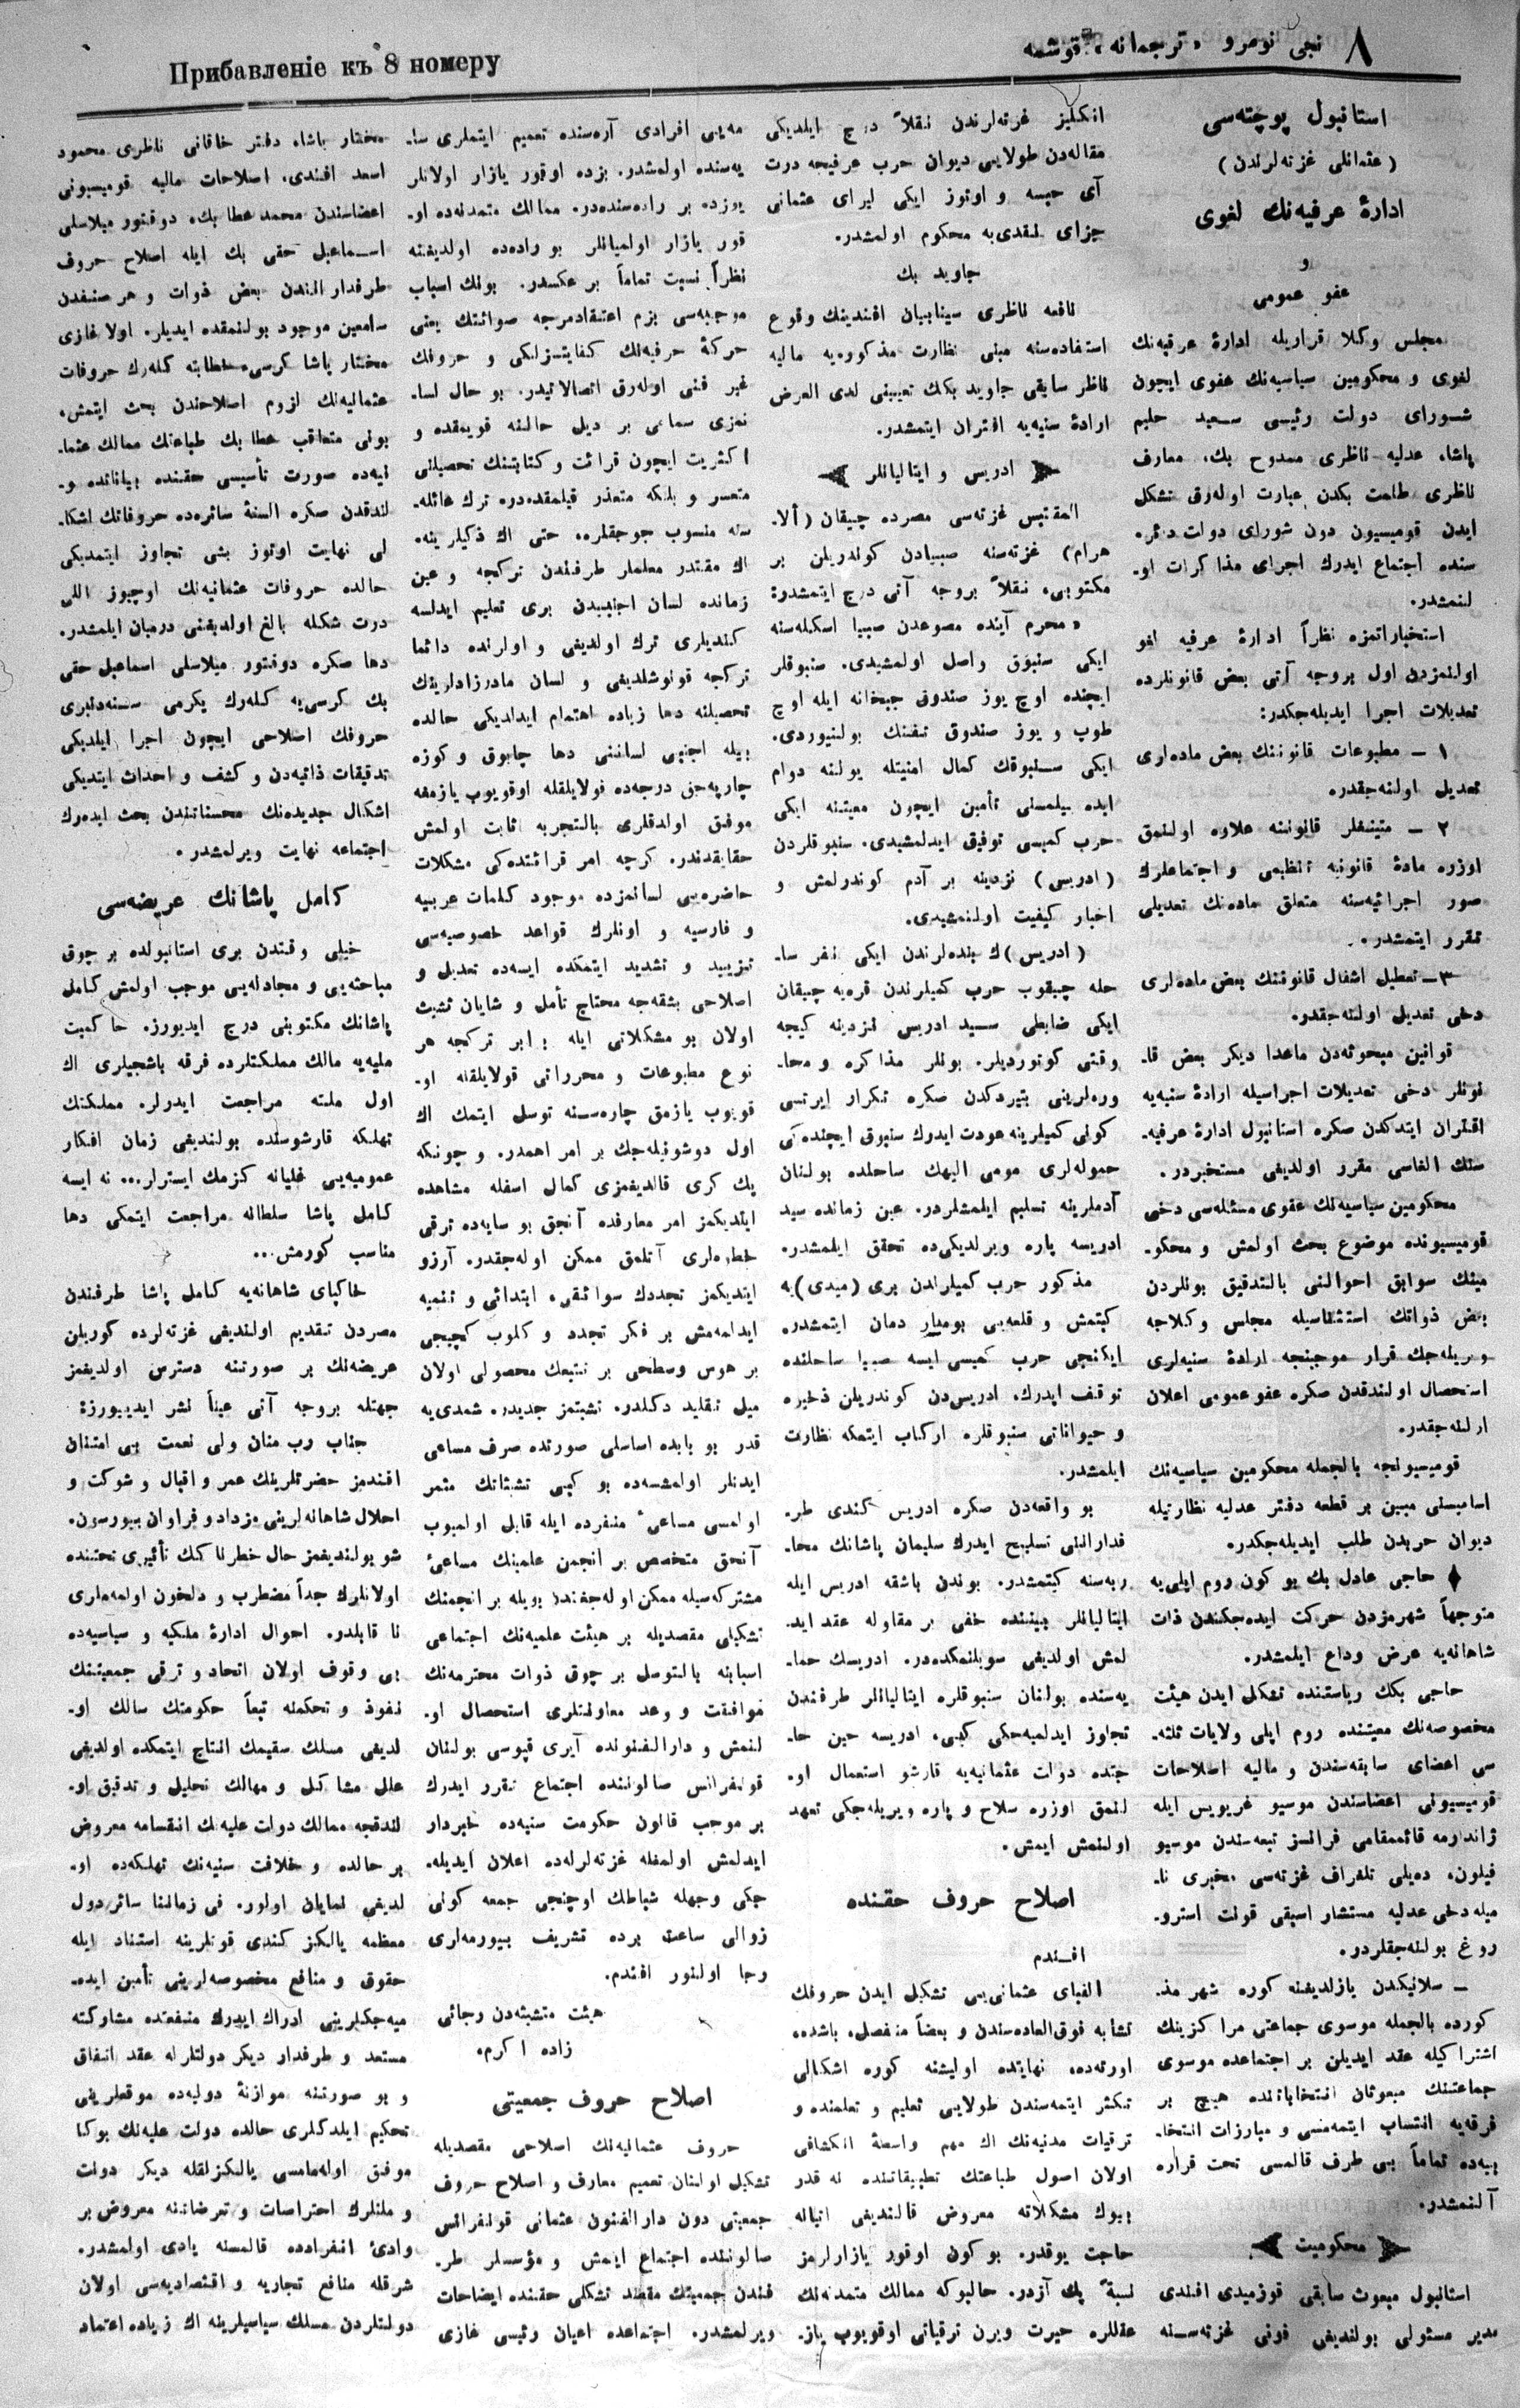 ٨ نجی نومرو «ترجمانه» قوشمه
Прибавленіе къ 8 номеру
استانبول پوچته‌سی
(عثمانلی غزته‌لرندن)
ادارهٔ عرفیه‌نك لغوی
و
عفو عمومی
مجلس وكلا قراریله ادارهٔ عرفیه‌نك
لغوی و محكومین سیاسیه‌نك عفوی ایچون
شورای دولت رئیسی سعید حلیم
پاشا، عدلیه ناظری ممدوح بك، معارف
ناظری طلعت بكدن عبارت اوله‌رق تشكل
ایدن قومیسیون دون شورای دولت دائره‌
سنده اجتماع ایدرك اجرای مذاكرات او‌ـ
لنمشدر.
استخباراتمزه نظراً ادارهٔ عرفیه لغو
اولنمزدن اول بروجه آتی بعض قانونلرده
تعدیلات اجرا ایدیله‌جكدر:
١ ـ مطبوعات قانوننك بعض ماده‌لری
تعدیل اولنه‌جقدر.
٢ ـ متینغلر قانوننه علاوه اولنمق
اوزره مادهٔ قانونیه تنظیمی و اجتماعلرك
صور اجرائیه‌سنه متعلق ماده‌نك تعدیلی
تقرر ایتمشدر.
٣ ـ تعطیل اشغال قانوننك بعض ماده‌لری
دخی تعدیل اولنه‌جقدر.
قوانین مبحوثه‌دن ماعدا دیكر بعض قا‌ـ
نونلر دخی تعدیلات اجراسیله ارادهٔ سنیه‌یه
اقتران ایتدكدن صكره استانبول ادارهٔ عرفیه‌ـ
سنك الغاسی مقرر اولدیغی مستخبردر.
محكومین سیاسیه‌نك عفوی مسئله‌سی دخی
قومیسیونده موضوع بحث اولمش و محكو‌ـ
مینك سوابق احوالنی بالتدقیق بونلردن
بعض ذواتك استثناسیله مجلس وكلاجه
ویریله‌جك قرار موجبنجه ارادهٔ سنیه‌لری
استحصال اولندقدن صكره عفو عمومی اعلان
اولنه‌جقدر.
قومیسیونجه بالجمله محكومین سیاسیه‌نك
اسامیسنی مبین بر قطعه دفتر عدلیه نظارتیله
دیوان حربدن طلب ایدیله‌جكدر.
حاجی عادل بك بو كون روم ایلی‌یه
متوجهاً شهرمزدن حركت ایده‌جكندن ذات
شاهانه‌یه عرض وداع ایلمشدر.
حاجی بكك ریاستنده تشكل ایدن هیئت
مخصوصه‌نك معیتنده روم ایلی ولایات ثلثه‌ـ
سی اعضای سابقه‌سندن و مالیه اصلاحات
قومیسیونی اعضاسندن موسیو غریویس ایله
ژاندارمه قائممقامی فرانسز تبعه‌سندن موسیو
فیلون، ده‌یلی تلغراف غزته‌سی مخبری نا‌ـ
میله دخی عدلیه مستشار اسبقی قونت استرو‌ـ
روغ بولنه‌جقلردر.
ـ سلانیكدن یازلدیغنه كوره شهر مذ‌ـ
كورده بالجمله موسوی جماعتی مراكزینك
اشتراكیله عقد ایدیلن بر اجتماعده موسوی
جماعتنك مبعوثان انتخاباتنده هیچ بر
فرقه‌یه انتساب ایتمه‌مسی و مبارزات انتخا‌ـ
بیه‌ده تماماً بی طرف قالمسی تحت قراره
آلنمشدر.
محكومیت
استانبول مبعوث سابقی قوزمیدی افندی
مدیر مسئولی بولندیغی فونی غزته‌سنه
انكلیز غزته‌لرندن نقلاً درج ایلدیكی
مقاله‌دن طولایی دیوان حرب عرفیجه درت
آی حبسه و اوتوز ایكی لیرای عثمانی
جزای نقدی‌یه محكوم اولمشدر.
جاوید بك
نافعه ناظری سینابیان افندینك وقوع
استفاده‌سنه مبنی نظارت مذكوره‌یه مالیه
ناظر سابقی جاوید بكك تعیینی لدی العرض
ارادهٔ سنیه‌یه اقتران ایتمشدر.
ادریس و ایتالیانلر
المقتبس غزته‌سی مصرده چیقان (ألا‌ـ
هرام) غزته‌سنه صبیادن كوندریلن بر
مكتوبی، نقلاً بروجه آتی درج ایتمشدر:
« محرم آینده مصوعدن صبیا اسكله‌سنه
ایكی سنبوق واصل اولمشیدی. سنبوقلر
ایچنده اوچ یوز صندوق جبخانه ایله اوچ
طوپ و یوز صندوق تفنك بولنیوردی.
ایكی سنبوقك كمال امنیتله یولنه دوام
ایده بیلمسنی تأمین ایچون معیتنه ایكی
حرب كمیسی توفیق ایدلمشیدی. سنبوقلردن
(ادریس) نزدینه بر آدم كوندرلمش و
اخبار كیفیت اولنمشیدی.
(ادریس)ك بنده‌لرندن ایكی نفر سا‌ـ
حله چیقوب حرب كمیلرندن قره‌یه چیقان
ایكی ضابطی سید ادریس نزدینه كیجه
وقتی كوتوردیلر. بونلر مذاكره و محا‌ـ
وره‌لرینی بتیردكدن صكره تكرار ایرتسی
كونی كمیلرینه عودت ایدرك سنبوق ایچنده‌كی
حموله‌لری مومی الیهك ساحلده بولنان
آدملرینه تسلیم ایلمشلردر. عین زمانده سید
ادریسه پاره ویرلدیكی‌ده تحقق ایلمشدر.
مذكور حرب كمیلرندن بری (میدی)یه
كیتمش و قلعه‌یی بومباردمان ایتمشدر.
ایكنجی حرب كمیسی ایسه صبیا ساحلنده
توقف ایدرك، ادریس‌دن كوندریلن ذخیره
و حیواناتی سنبوقلره اركاب ایتمكه نظارت
ایلمشدر.
بو واقعه‌دن صكره ادریس كندی طر‌ـ
فدارانی تسلیح ایدرك سلیمان پاشانك محا‌ـ
ربه‌سنه كیتمشدر. بوندن باشقه ادریس ایله
ایتالیانلر بیننده خفی بر مقاوله عقد اید‌ـ
لمش اولدیغی سویلنمكده‌در. ادریسك حما‌ـ
یه‌سنده بولنان سنبوقلره ایتالیانلر طرفندن
تجاوز ایدلمیه‌جكی كبی، ادریسه حین حا‌ـ
جتده دولت عثمانیه‌یه قارشو استعمال او‌ـ
لنمق اوزره سلاح و پاره ویریله‌جكی تعهد
اولنمش ایمش.
اصلاح حروف حقنده
افندم
الفبای عثمانی‌یی تشكیل ایدن حروفك
تشابه فوق‌العاده‌سندن و بعضاً منفصل، باشده،
اورته‌ده، نهایتده اولیشنه كوره اشكالی
تكثر ایتمه‌سندن طولایی تعلیم و تعلمنده و
ترقیات مدنیه‌نك اك مهم واسطهٔ انكشافی
اولان اصول طباعتك تطبیقاتنده نه قدر
بیوك مشكلاته معروض قالندیغی اتیانه
حاجت یوقدر. بو كون اوقور یازارلرمز
نسبةً پك آزدر. حالبوكه ممالك متمدنه‌نك
عقللره حیرت ویرن ترقیاتی اوقویوب یاز‌ـ
مه‌یی افرادی آره‌سنده تعمیم ایتملری سا‌ـ
یه‌سنده اولمشدر. بزده اوقور یازار اولانلر
یوزده بر راده‌سنده‌در. ممالك متمدنه‌ده او‌ـ
قور یازار اولمیانلر بو راده‌ده اولدیغنه
نظراً نسبت تماماً بر عكسدر. بونك اسباب
موجبه‌سی بزم اعتقادمزجه صوائتك یعنی
حركهٔ حرفیه‌نك كفایتسزلكی و حروفك
غیر فنی اوله‌رق اتصالاتیدر. بو حال لسا‌ـ
نمزی سماعی بر دیل حالنه قویمقده و
اكثریت ایچون قرائت و كتابتنك تحصیلنی
متعسر و بلكه متعذر قیلمقده‌در. ترك عائله‌ـ
سنه منسوب جوجقلره، حتی اك ذكیلرینه،
اك مقتدر معلملر طرفندن تركجه و عین
زمانده لسان اجنبیدن بری تعلیم ایدلسه
كندیلری ترك اولدیغی و اولرنده دائما
تركجه قونوشلدیغی و لسان مادرزادلرینك
تحصیلنه دها زیاده اهتمام ایدلدیكی حالده
بیله اجنبی لساننی دها چابوق و كوزه
چارپه‌جق درجه‌ده قولایلقله اوقویوب یازمغه
موفق اولدقلری بالتجربه ثابت اولمش
حقایقدندر. كرچه امر قرائتده‌كی مشكلات
حاضره‌یی لسانمزده موجود كلمات عربیه
و فارسیه و اونلرك قواعد خصوصیه‌سی
تزیید و تشدید ایتمكده ایسه‌ده تعدیل و
اصلاحی بشقه‌جه محتاج تأمل و شایان تشبث
اولان بو مشكلاتی ایله برابر تركجه هر
نوع مطبوعات و محرراتی قولایلقله او‌ـ
قویوب یازمق چاره‌سنه توسل ایتمك اك
اول دوشونیله‌جك بر امر اهمدر. و چونكه
پك كری قالدیغمزی كمال اسفله مشاهده
ایتدیكمز امر معارفده آنجق بو سایه‌ده ترقی
خطوه‌لری آتلمق ممكن اوله‌جقدر. آرزو
ایتدیكمز تجددك سوائقی، ابتدائی و تنمیه
ایدلمه‌مش بر فكر تجدد و كلوب كچیجی
بر هوس وسطحی بر تتبعك محصولی اولان
میل تقلید دكلدر. تشبثمز جدیدر. شمدی‌یه
قدر بو بابده اساسلی صورتده صرف مساعی
ایدنلر اولمشسه‌ده بو كبی تشبثاتك مثمر
اولمسی مساعیء منفرده ایله قابل اولمیوب
آنجق متخصص بر انجمن علمینك مساعئ
مشتركه‌سیله ممكن اوله‌جغندن بویله بر انجمنك
تشكیلی مقصدیله بر هیئت علمیه‌نك اجتماعی
اسبابنه بالتوسل بر چوق ذوات محترمه‌نك
موافقت و وعد معاونتلری استحصال او‌ـ
لنمش و دارالفنونده آیری قپوسی بولنان
قونفرانس صالوننده اجتماع تقرر ایدرك
بر موجب قانون حكومت سنیه‌ده خبردار
ایدلمش اولمغله غزته‌لرله‌ده اعلان ایدیله‌ـ
جكی وجهله شباطك اوچنجی جمعه كونی
زوالی ساعت برده تشریف بیورمه‌لری
رجا اولنور افندم.
هیئت متشبثه‌دن رجائی
زاده اكرم.
اصلاح حروف جمعیتی
حروف عثمانیه‌نك اصلاحی مقصدیله
تشكیل اولنان تعمیم معارف و اصلاح حروف
جمعیتی دون دارالفنون عثمانی قونفرانس
صالوننده اجتماع ایتمش و مؤسسلر طر‌ـ
فندن جمعیتك مقصد تشكلی حقنده ایضاحات
ویرلمشدر. اجتماعده اعیان رئیسی غازی
مختار پاشا، دفتر خاقانی ناظری محمود
اسعد افندی، اصلاحات مالیه قومیسیونی
اعضاسندن محمد عطا بك، دوقتور میلاسلی
اسماعیل حقی بك ایله اصلاح حروف
طرفدارانندن بعض ذوات و هر صنفدن
سامعین موجود بولنمقده ایدیلر. اولا غازی
مختار پاشا كرسیء خطابته كله‌رك حروفات
عثمانیه‌نك لزوم اصلاحندن بحث ایتمش،
بونی متعاقب عطا بك طباعتك ممالك عثما‌ـ
نیه‌ده صورت تأسیسی حقنده بیاناتده بو‌ـ
لندقدن صكره السنهٔ سائره‌ده حروفاتك اشكا‌ـ
لی نهایت اوتوز بشی تجاوز ایتمدیكی
حالده حروفات عثمانیه‌نك اوچیوز اللی
درت شكله بالغ اولدیغنی درمیان ایلمشدر.
دها صكره دوقتور میلاسلی اسماعیل حقی
بك كرسی‌یه كله‌رك یكرمی سنه‌دنبری
حروفك اصلاحی ایچون اجرا ایلدیكی
تدقیقات ذاتیه‌دن و كشف و احداث ایتدیكی
اشكال جدیده‌نك محسناتندن بحث ایده‌رك
اجتماعه نهایت ویرلمشدر.
كامل پاشانك عریضه‌سی
خیلی وقتدن بری استانبولده بر چوق
مباحثه‌یی و مجادله‌یی موجب اولمش كامل
پاشانك مكتوبنی درج ایدیورز. حاكمیت
ملیه‌یه مالك مملكتلرده فرقه باشجیلری اك
اول ملته مراجعت ایدرلر. مملكتك
تهلكه قارشوسنده بولندیغی زمان افكار
عمومیه‌یی غلیانه كزمك ایسترلر... نه ایسه
كامل پاشا سلطانه مراجعت ایتمكی دها
مناسب كورمش...
خاكپای شاهانه‌یه كامل پاشا طرفندن
مصردن تقدیم اولندیغی غزته‌لرده كوریلن
عریضه‌نك بر صورتنه دسترس اولدیغمز
جهتله بروجه آتی عیناً نشر ایدییورز:
جناب رب منان ولی نعمت بی امتنان
افندمز حضرتلرینك عمر و اقبال و شوكت و
اجلال شاهانه‌لرینی مزداد و فراوان بیورسون.
شو بولندیغمز حال خطرناكك تأثیری تحتنده
اولانلرك جداً مضطرب و دلخون اولمه‌ملری
نا قابلدر. احوال ادارهٔ ملكیه و سیاسیه‌ده
بی وقوف اولان اتحاد و ترقی جمعیتنك
نفوذ و تحكمنه تبعاً حكومتك سالك او‌ـ
لدیغی مسلك سقیمك انتاج ایتمكده اولدیغی
علل مشاكل و مهالك تحلیل و تدقیق او‌ـ
لندقجه ممالك دولت علیه‌نك انقسامه معروض
بر حالده و خلافت سنیه‌نك تهلكه‌ده او‌ـ
لدیغی نمایان اولور. فی زماننا سائر دول
معظمه یالكز كندی قوتلرینه استناد ایله
حقوق و منافع مخصوصه‌لرینی تأمین ایده‌ـ
میه‌جكلرینی ادراك ایدرك منفعتده مشاركته
مستعد و طرفدار دیكر دولتلرله عقد اتفاق
و بو صورتنه موازنهٔ دولیه‌ده موقعلرینی
تحكیم ایلدكلری حالده دولت علیه‌نك بوكا
موفق اوله‌مامسی یالكزلقله دیكر دولت
و ملتلرك احتراصات و تعرضاتنه معروض بر
وادئ انفرادده قالمسنه بادی اولمشدر.
شرقله منافع تجاریه و اقتصادیه‌سی اولان
دولتلردن مسلك سیاسیلرینه اك زیاده اعتماد